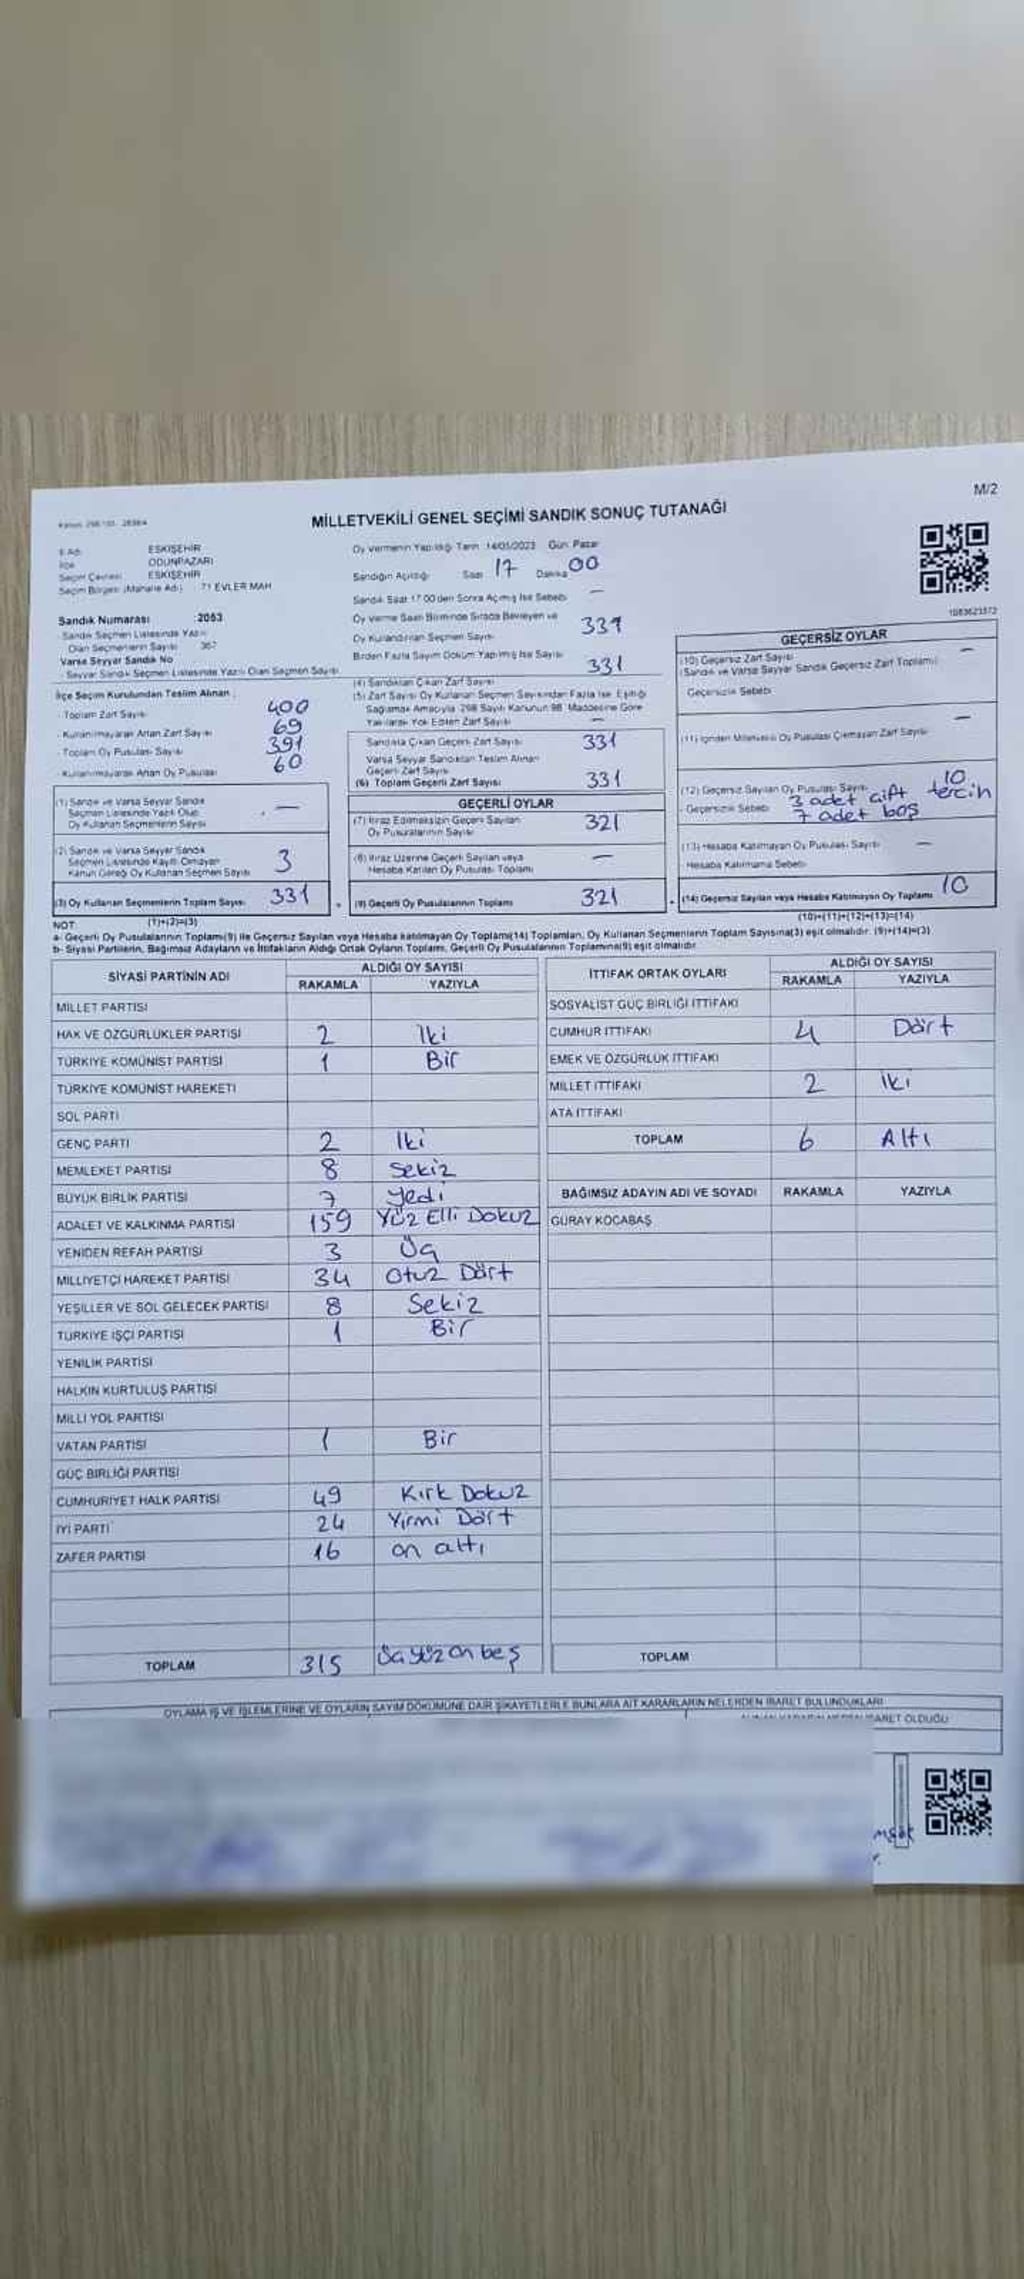 M/2
MİLLETVEKİLİ GENEL SEÇİMİ SANDIK SONUÇ TUTANAĞI
İl Adı ESKİŞEHİR
İlçe ODUNPAZARI
Seçim Çevresi ESKİŞEHİR
Seçim Bölgesi (Mahalle Adı) 71 EVLER MAH
Sandık Numarası :2053
Sandık Seçmen Listesinde Yazılı
Olan Seçmenlerin Sayısı 367
Varsa Seyyar Sandık No
Seyyar Sandık Seçmen Listesinde Yazılı Olan Seçmen Sayısı
İlçe Seçim Kurulundan Teslim Alınan
Toplam Zarf Sayısı 400
Kullanılmayarak Artan Zarf Sayısı 69
Toplam Oy Pusulası Sayısı 391
Kullanılmayarak Artan Oy Pusulası 60
(1) Sandık ve Varsa Seyyar Sandık
Seçmen Listesinde Yazılı Olup
Oy Kullanan Seçmenlerin Sayısı —
(2) Sandık ve Varsa Seyyar Sandık
Seçmen Listesinde Kayıtlı Olmayan
Kanun Gereği Oy Kullanan Seçmen Sayısı 3
(3) Oy Kullanan Seçmenlerin Toplam Sayısı 331
(1)+(2)=(3)
Oy Vermenin Yapıldığı Tarih 14/05/2023 Gün Pazar
Sandığın Açıldığı Saat 17 Dakika 00
Sandık Saat 17.00'den Sonra Açılmış İse Sebebi —
Oy Verme Saati Bitiminde Sırada Bekleyen ve
Oy Kullandırılan Seçmen Sayısı 331
Birden Fazla Sayım Döküm Yapılmış İse Sayısı
(4) Sandıktan Çıkan Zarf Sayısı 331
(5) Zarf Sayısı Oy Kullanan Seçmen Sayısından Fazla İse, Eşitliği
Sağlamak Amacıyla 298 Sayılı Kanunun 98. Maddesine Göre
Yakılarak Yok Edilen Zarf Sayısı —
Sandıkta Çıkan Geçerli Zarf Sayısı 331
Varsa Seyyar Sandıktan Teslim Alınan
Geçerli Zarf Sayısı
(6) Toplam Geçerli Zarf Sayısı 331
GEÇERLİ OYLAR
(7) İtiraz Edilmeksizin Geçerli Sayılan
Oy Pusulalarının Sayısı 321
(8) İtiraz Üzerine Geçerli Sayılan veya
Hesaba Katılan Oy Pusulası Toplamı —
(9) Geçerli Oy Pusulalarının Toplamı 321
GEÇERSİZ OYLAR
(10) Geçersiz Zarf Sayısı
(Sandık ve Varsa Seyyar Sandık Geçersiz Zarf Toplamı) —
Geçersizlik Sebebi
(11) İçinden Milletvekili Oy Pusulası Çıkmayan Zarf Sayısı —
(12) Geçersiz Sayılan Oy Pusulası Sayısı 10
Geçersizlik Sebebi 3 adet çift tercih
7 adet boş
(13) Hesaba Katılmayan Oy Pusulası Sayısı —
Hesaba Katılmama Sebebi
(14) Geçersiz Sayılan veya Hesaba Katılmayan Oy Toplamı 10
(10)+(11)+(12)+(13)=(14)
NOT:
a- Geçerli Oy Pusulalarının Toplamı(9) ile Geçersiz Sayılan veya Hesaba katılmayan Oy Toplamı(14) Toplamları, Oy Kullanan Seçmenlerin Toplam Sayısına(3) eşit olmalıdır. (9)+(14)=(3)
b- Siyasi Partilerin, Bağımsız Adayların ve İttifakların Aldığı Ortak Oyların Toplamı, Geçerli Oy Pusulalarının Toplamına(9) eşit olmalıdır
SİYASİ PARTİNİN ADI ALDIĞI OY SAYISI
RAKAMLA YAZIYLA
MİLLET PARTİSİ
HAK VE ÖZGÜRLÜKLER PARTİSİ 2 İki
TÜRKİYE KOMÜNİST PARTİSİ 1 Bir
TÜRKİYE KOMÜNİST HAREKETİ
SOL PARTİ
GENÇ PARTİ 2 İki
MEMLEKET PARTİSİ 8 Sekiz
BÜYÜK BİRLİK PARTİSİ 7 Yedi
ADALET VE KALKINMA PARTİSİ 159 Yüz Elli Dokuz
YENİDEN REFAH PARTİSİ 3 Üç
MİLLİYETÇİ HAREKET PARTİSİ 34 Otuz Dört
YEŞİLLER VE SOL GELECEK PARTİSİ 8 Sekiz
TÜRKİYE İŞÇİ PARTİSİ 1 Bir
YENİLİK PARTİSİ
HALKIN KURTULUŞ PARTİSİ
MİLLİ YOL PARTİSİ
VATAN PARTİSİ 1 Bir
GÜÇ BİRLİĞİ PARTİSİ
CUMHURİYET HALK PARTİSİ 49 Kırk Dokuz
İYİ PARTİ 24 Yirmi Dört
ZAFER PARTİSİ 16 on altı
TOPLAM 315 Üçyüz on beş
İTTİFAK ORTAK OYLARI ALDIĞI OY SAYISI
RAKAMLA YAZIYLA
SOSYALİST GÜÇ BİRLİĞİ İTTİFAKI
CUMHUR İTTİFAKI 4 Dört
EMEK VE ÖZGÜRLÜK İTTİFAKI
MİLLET İTTİFAKI 2 İki
ATA İTTİFAKI
TOPLAM 6 Altı
BAĞIMSIZ ADAYIN ADI VE SOYADI RAKAMLA YAZIYLA
GÜRAY KOCABAŞ
TOPLAM
OYLAMA İŞ VE İŞLEMLERİNE VE OYLARIN SAYIM DÖKÜMÜNE DAİR ŞİKAYETLERLE BUNLARA AİT KARARLARIN NELERDEN İBARET BULUNDUKLARI